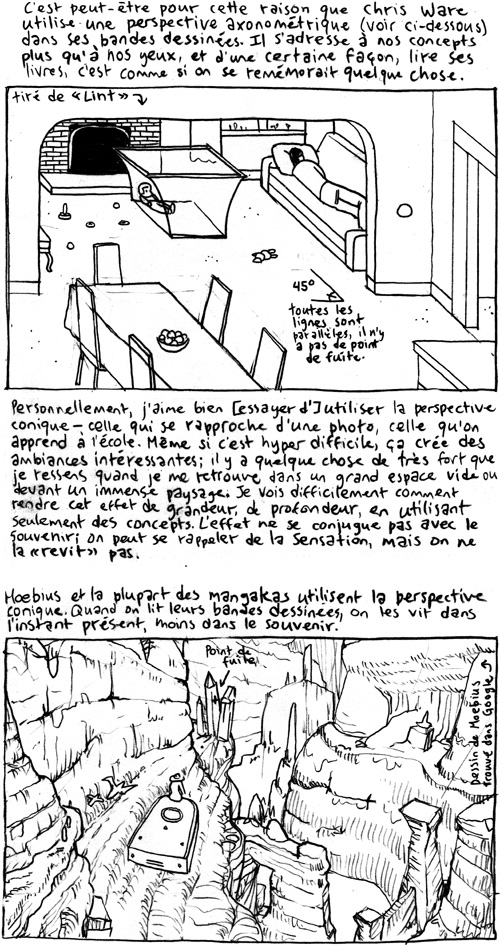 C'est peut-être pour cette raison que Chris Ware
utilise une perspective axonométrique (voir ci-dessous)
dans ses bandes dessinées. Il s'adresse à nos concepts
plus qu'à nos yeux, et d'une certaine façon, lire ses
livres, c'est comme si on se remémorait quelque chose.
tiré de «Lint»
45°
toutes les
lignes sont
parallèles, il n'y
a pas de point
de fuite.
Personnellement, j'aime bien [essayer d']utiliser la perspective
conique – celle qui se rapproche d'une photo, celle qu'on
apprend à l'école. Même si c'est hyper difficile, ça crée des
ambiances intéressantes; il y a quelque chose de très fort que
je ressens quand je me retrouve dans un grand espace vide ou
devant un immense paysage. Je vois difficilement comment
rendre cet effet de grandeur, de profondeur, en utilisant
seulement des concepts. L'effet ne se conjugue pas avec le
souvenir; on peut se rappeler de la sensation, mais on ne
la «revit» pas.
Moebius et la plupart des mangakas utilisent la perspective
conique. Quand on lit leurs bandes dessinées, on les vit dans
l'instant présent, moins dans le souvenir.
Point de
fuite
dessin de Moebius
trouvé dans Google